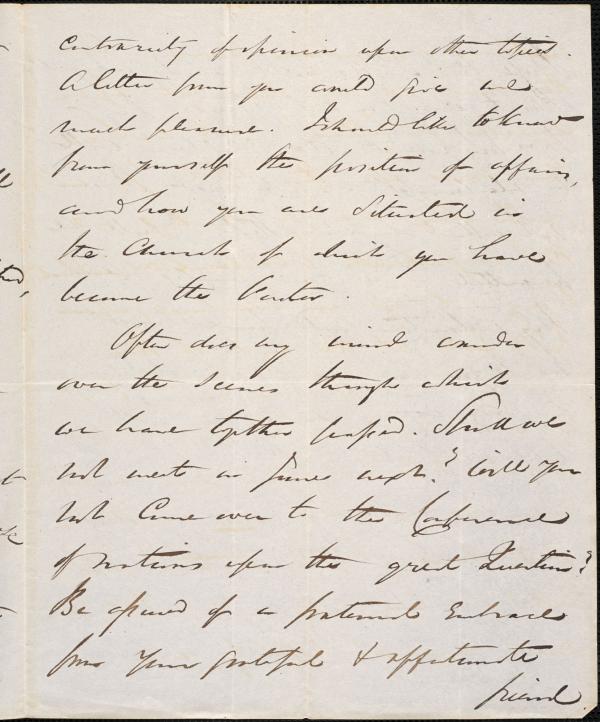 contrariety of opinion upon other topics.
A letter from you would give me
much pleasure. I should like to know
from yourself the position of affairs,
and how you are situated in
the Church of which you have
become the Pastor.
Often does my mind wander
over the scenes through which
we have together passed. Shall we
not meet in June next? Will you
not come over to the Conference
of nations upon the great Question?
Be assured of a fraternal embrace
from your grateful & affectionate
friend